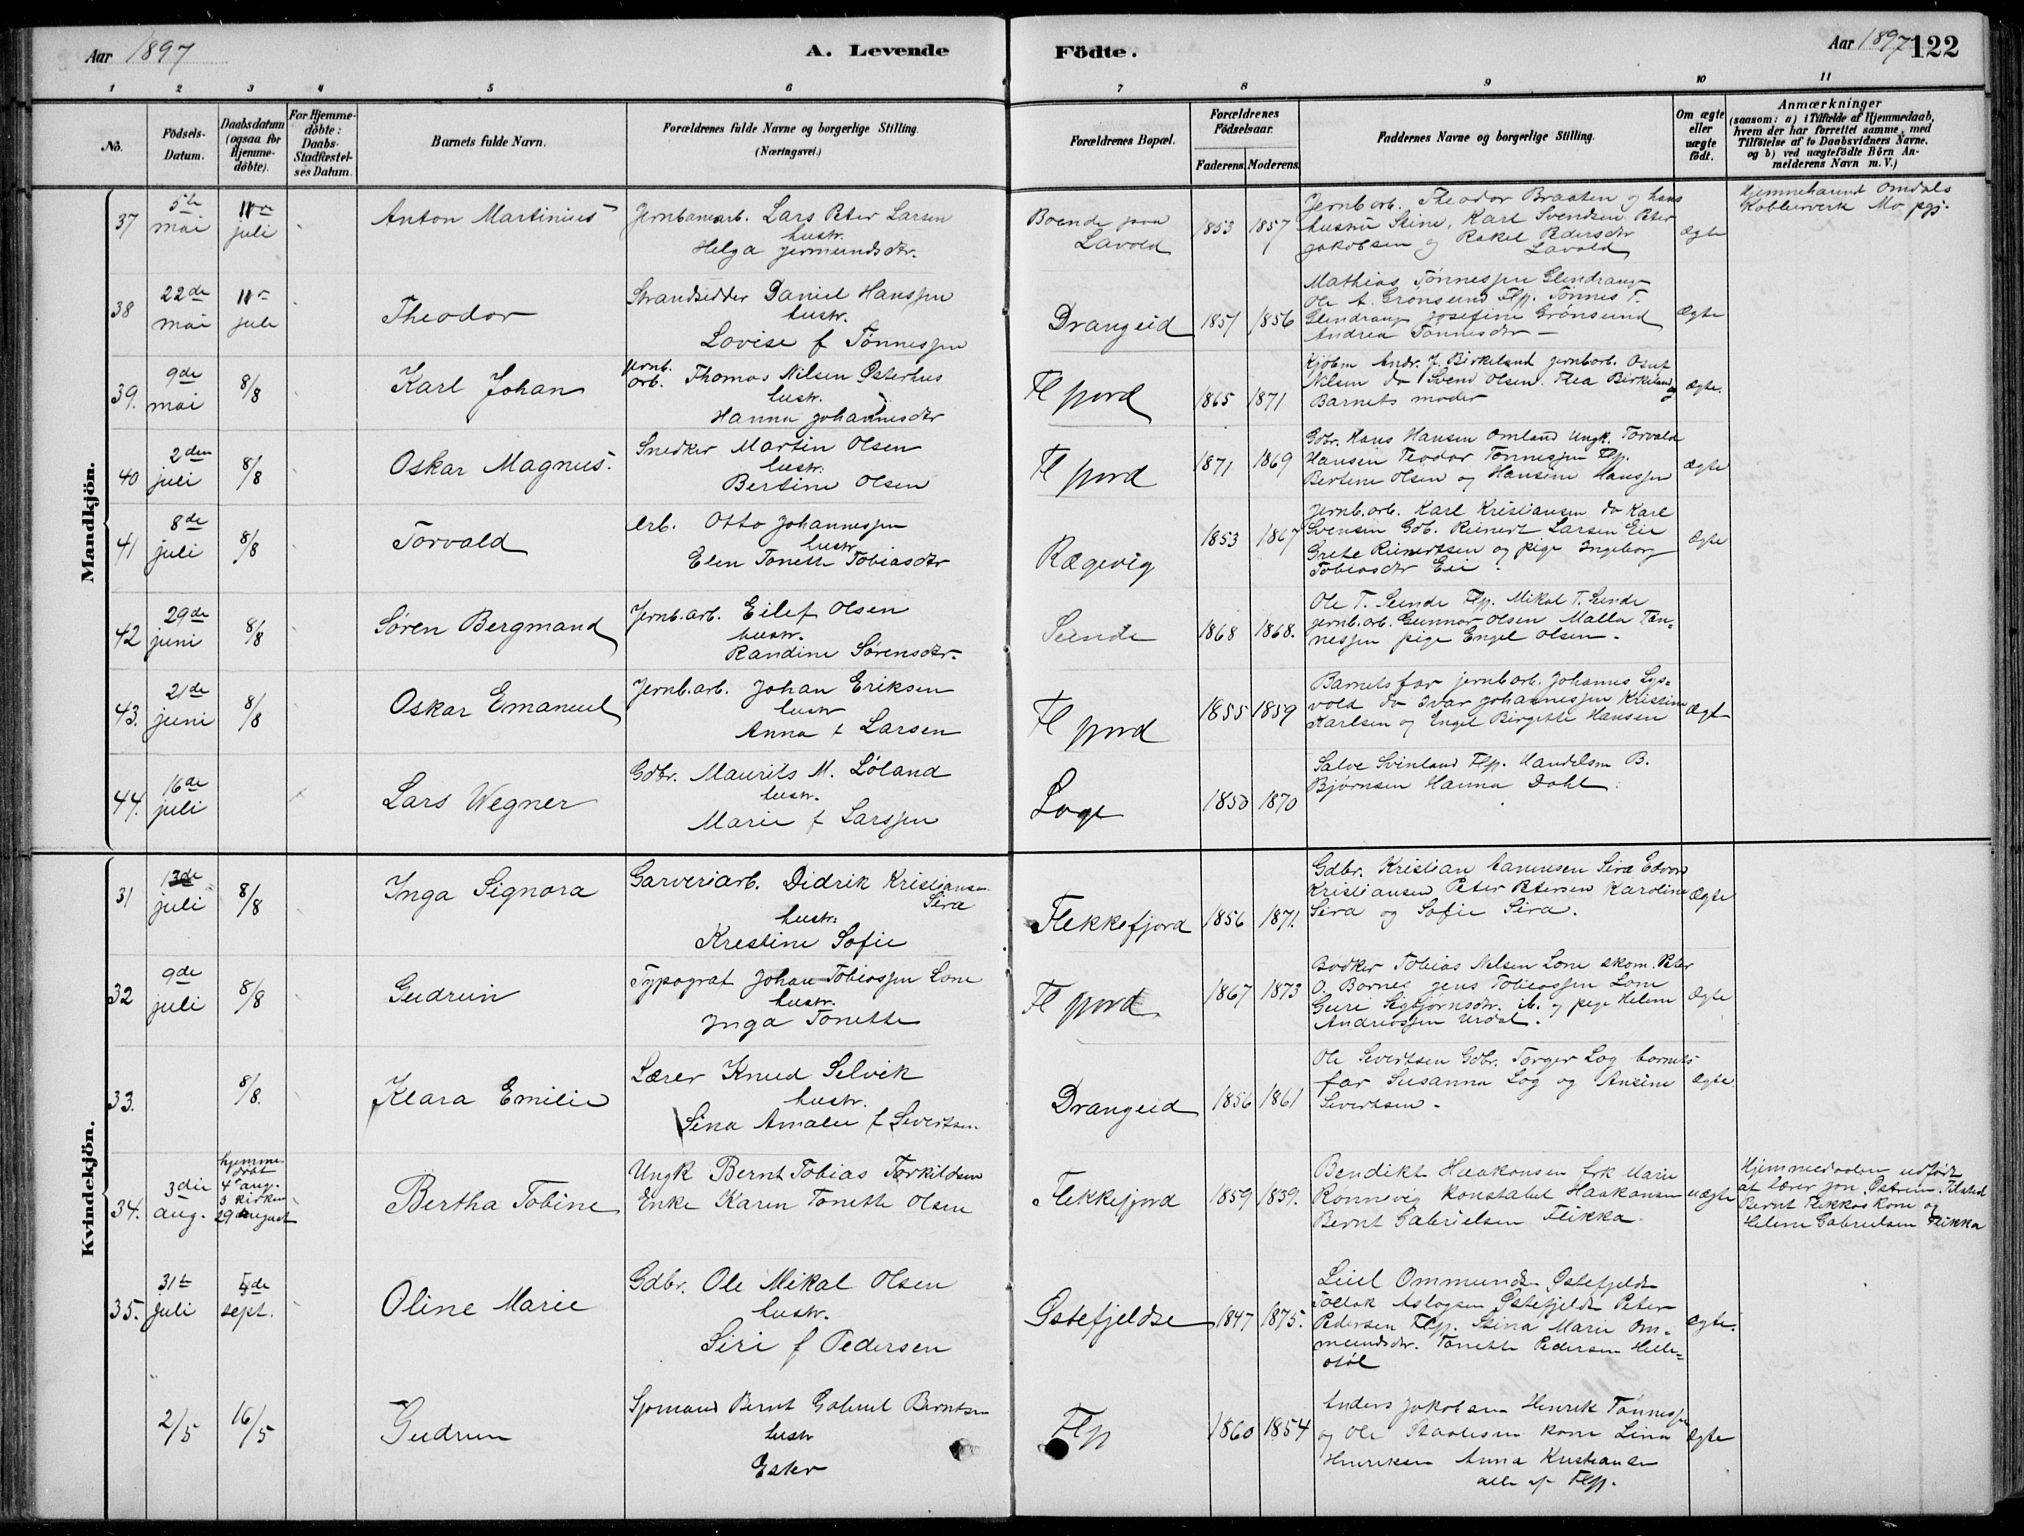 Aar 1897
A. Levende
Födte.
Aar 1897 122
1 2 3 4 5 6 7 8 9 10 11
No.
Födsels-
Datum.
Daabsdatum
(ogsaa for
Hjemme-
döbte).
For Hjemme-
döbte:
Daabs-
Stadfæstel-
ses Datum.
Barnets fulde Navn.
Forældrenes fulde Navne og borgerlige Stilling.
(Næringsvei.)
Forældrenes Bopæl.
Forældrenes
Födselsaar.
Faderens. Moderens.
Faddernes Navne og borgerlige Stilling.
Om ægte
eller
uægte
födt.
Anmærkninger
(saasom: a) i Tilfælde af Hjemmedaab,
hvem der har forrettet samme, med
Tilföielse af to Daabsvidners Navne.
og b) ved uægtefödte Börn An-
melderens Navn m. V.)
Mandkjön.
37
5te
mai
11te
juli
Anton Martinius
Jernbanearb. Lars Peter Larsen
hustr.
Helga Jermundsdtr.
Boende paa
Lavold
1853 1857
Jernb.arb. Theodor Braaten og hans
hustru Stine, Karl Svendsen Peter
Jakobsen og Rakel Pedersdtr
Lavold
Ægte
Omdals
Kobberverk Mo pgj.
38
22de
mai
11te
juli
Theodor
Strandsidder Daniel Hanssen
hustr.
Lovise f Tønnessen
Drangeid
1851 1856
Mathias Tønnessen Glendrange
Ole A. Grønsund Flfj. Tønnes T.
Glendrange Josefine Grønsund
Andrea Tønnesdtr
Ægte
39.
9de
mai
8/8
Karl Johan
Jernb.
arb. Thomas Nilsen Østerhus
hustr.
Hanna Johannesdtr
Fl fjord
1865 1871
Kjøbm Andr. J. Birkeland jernb.arb. Osuf
Nilsen do Svend Olsen. Thea Birkeland
og
Barnets moder
Ægte.
40
2den
juli
8/8
Oskar Magnus.
Snedker Martin Olsen
hustr.
Bertine Olsen
Fl fjord
1871 1869
Gdbr. Hans Hansen Omland Ungk. Torvald
Hansen Teodor Tønnessen Flfj.
Bertine Olsen og Hansine Hanssen
Ægte
41
8de
juli
8/8
Torvald
Arb. Otto Johannessen
hustr.
Elen Tonette Tobiasdtr
Rægevig
1853 1867
Jernb.arb. Karl Kristiansen do Karl
Svensen Gdb. Reinert Larsen Eie
Grete Reinertsen og pige Ingeborg
Tobiasdtr Eie.
Ægte
42
29de
juni
8/8
Søren Bergmand
Jernb.arb. Eilef Olsen
hustr.
Randine Sørensdtr.
Sunde
1868 1868.
Ole T. Sunde Flfj. Mikal T. Sunde
jernb.arb. Gunnar Olsen Malla Tøn-
nessen pige Engel Olsen.
43.
21de
juni
8/8
Oskar Emanuel
Jernb.arb. Johan Eriksen
hustr
Anna f Larsen
Fl fjord
1855 1859
Barnets far jernb.arb. Johannes Lys-
vold do Ivar Johannessen Kristine
Karlsen og Engel Birgitte Hansen
Ægte
44.
16de
juli
Lars Wegner
Gdbr. Maurits M. Løland
hustr.
Marie f Larssen
Loge
1850 1870
Salve Svinland Flfj. Handelsm B.
Bjørnsen Hanna Dahl.
Kvindekjön.
31
13de
juli
8/8
Inga Signora
Garveriarb. Didrik Kristiansen
Sira
hustr.
Kristine Sofie
Flekkefjord
1856 1871.
Gdbr. Kristian Sira Edvard
Kristiansen Peter Petersen Karoline
Sira og Sofie Sira.
Ægte
32
9de
juli
8/8
Gudrun
Typograf Johan Tobiassen Lone
hustr.
Inga Tonette
Fl fjord
1867 1873
Bødker Tobias Nilsen Lone skom. Peter
O. Bornes Jens Tobiassen Lone
Guri Sigbjørnsdtr. ib. og pige Helene
Andreassen Urdal.
Ægte
33.
8/8.
Klara Emilie
Lærer Knud Selvik
hustr.
Sina Amalie f Sivertsen
Drangeid
1856 1861
Ole Sivertsen Gdbr. Torger Log barnets
far Susanna Log og Ansine
Sivertsen.
Ægte
34.
3die
aug.
hjemme-
døbt
4 aug.
i kirken
29 august
Bertha Tobine
Ungk Bernt Tobias Torkildsen
Enke Karen Tonette Olsen
Flekkefjord
1859 1839.
Bendikt Haakonsen frk Marie
Rønnevig konstabel Haakonsen
Bernt Gabrielsen Flikka.
uægte
Hjemmedaaben udført
af lærer Jon Østrem. Tilsted
Bernt Flikkas kone og
Helene Gabrielsen Flikka
35.
31te
juli
5de
sept.
Oline Marie
Gdbr. Ole Mikal Olsen
hustr.
Siri f Pedersen
Østefjeldse
1847 1875.
Leiel Ommunds. Østefjeldse
Tollak Aslagsen Østefjeldse Peter
Pedersen Flfj. Stina Marie Om-
mundsdtr. Tonette Pedersen Helle-
støl
Ægte.
2/5
16/5
Gudrun
Sjømand Bernt Gabriel Berntsen
hustr
Ester
Flfj
1860 1854
Anders Jakobsen Henrik Tønnessen
og Ole kone Lina
Henriksen Anna Kristiansen
alle af Flfj.
Ægte